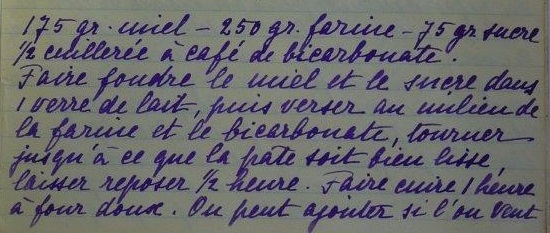 175 gr. miel - 250 gr. farine - 75 gr sucre
½ cuillerée à café de bicarbonate.
Faire fondre le miel et le sucre dans
1 verre de lait, puis verser au milieu de
la farine et le bicarbonate, tourner
jusqu'à ce que la pate soit bien lisse
laisser reposer ½ heure. Faire cuire 1 heure
à four doux. On peut ajouter si l'on veut